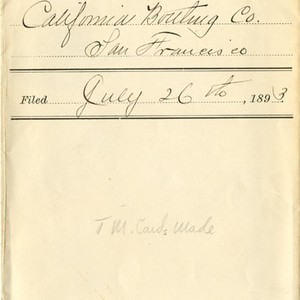 California Bottling Co.
San Francisco
Filed July 26th, 1893
T M. Cards Made